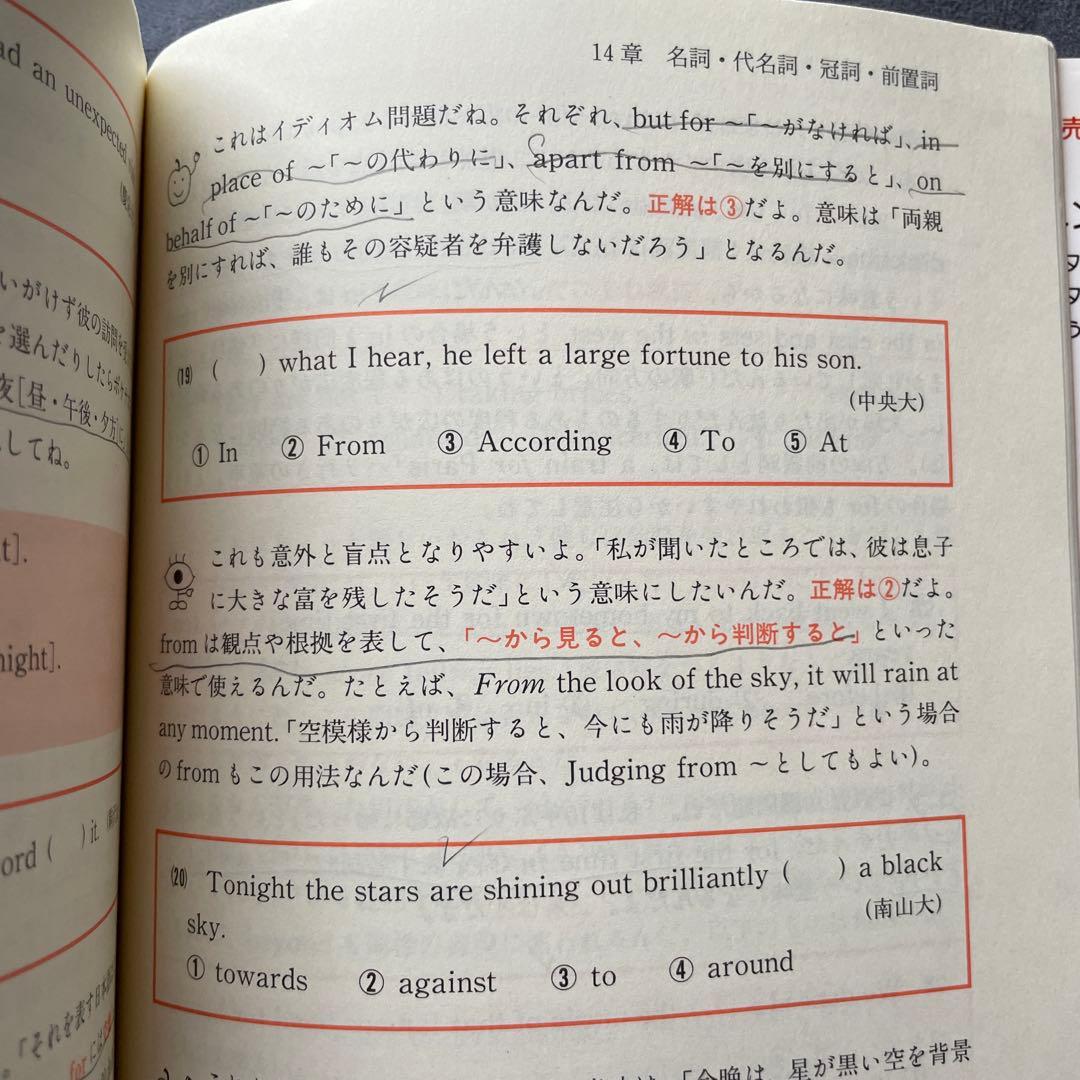 14章 名詞・代名詞・冠詞・前置詞
これはイディオム問題だね。それぞれ、but for ～「～がなければ」、in
place of ～「～の代わりに」、apart from ～「～を別にすると」、on
behalf of ～「～のために」という意味なんだ。正解は③だよ。意味は「両親
を別にすれば、誰もその容疑者を弁護しないだろう」となるんだ。
(19) (　) what I hear, he left a large fortune to his son.
(中央大)
① In ② From ③ According ④ To ⑤ At
これも意外と盲点となりやすいよ。「私が聞いたところでは、彼は息子
に大きな富を残したそうだ」という意味にしたいんだ。正解は②だよ。
fromは観点や根拠を表して、「～から見ると、～から判断すると」といった
意味で使えるんだ。たとえば、From the look of the sky, it will rain at
any moment.「空模様から判断すると、今にも雨が降りそうだ」という場合
のfromもこの用法なんだ(この場合、Judging from ～としてもよい)。
(20) Tonight the stars are shining out brilliantly (　) a black
sky.
(南山大)
① towards ② against ③ to ④ around
「今晩は、星が黒い空を背景
ad an unexpected
いがけず彼の訪問を
選んだりしたらボケ
夜[昼・午後・夕方]に
してね。
t].
night].
ord (　) it.
「それを表す日本語
for には
売